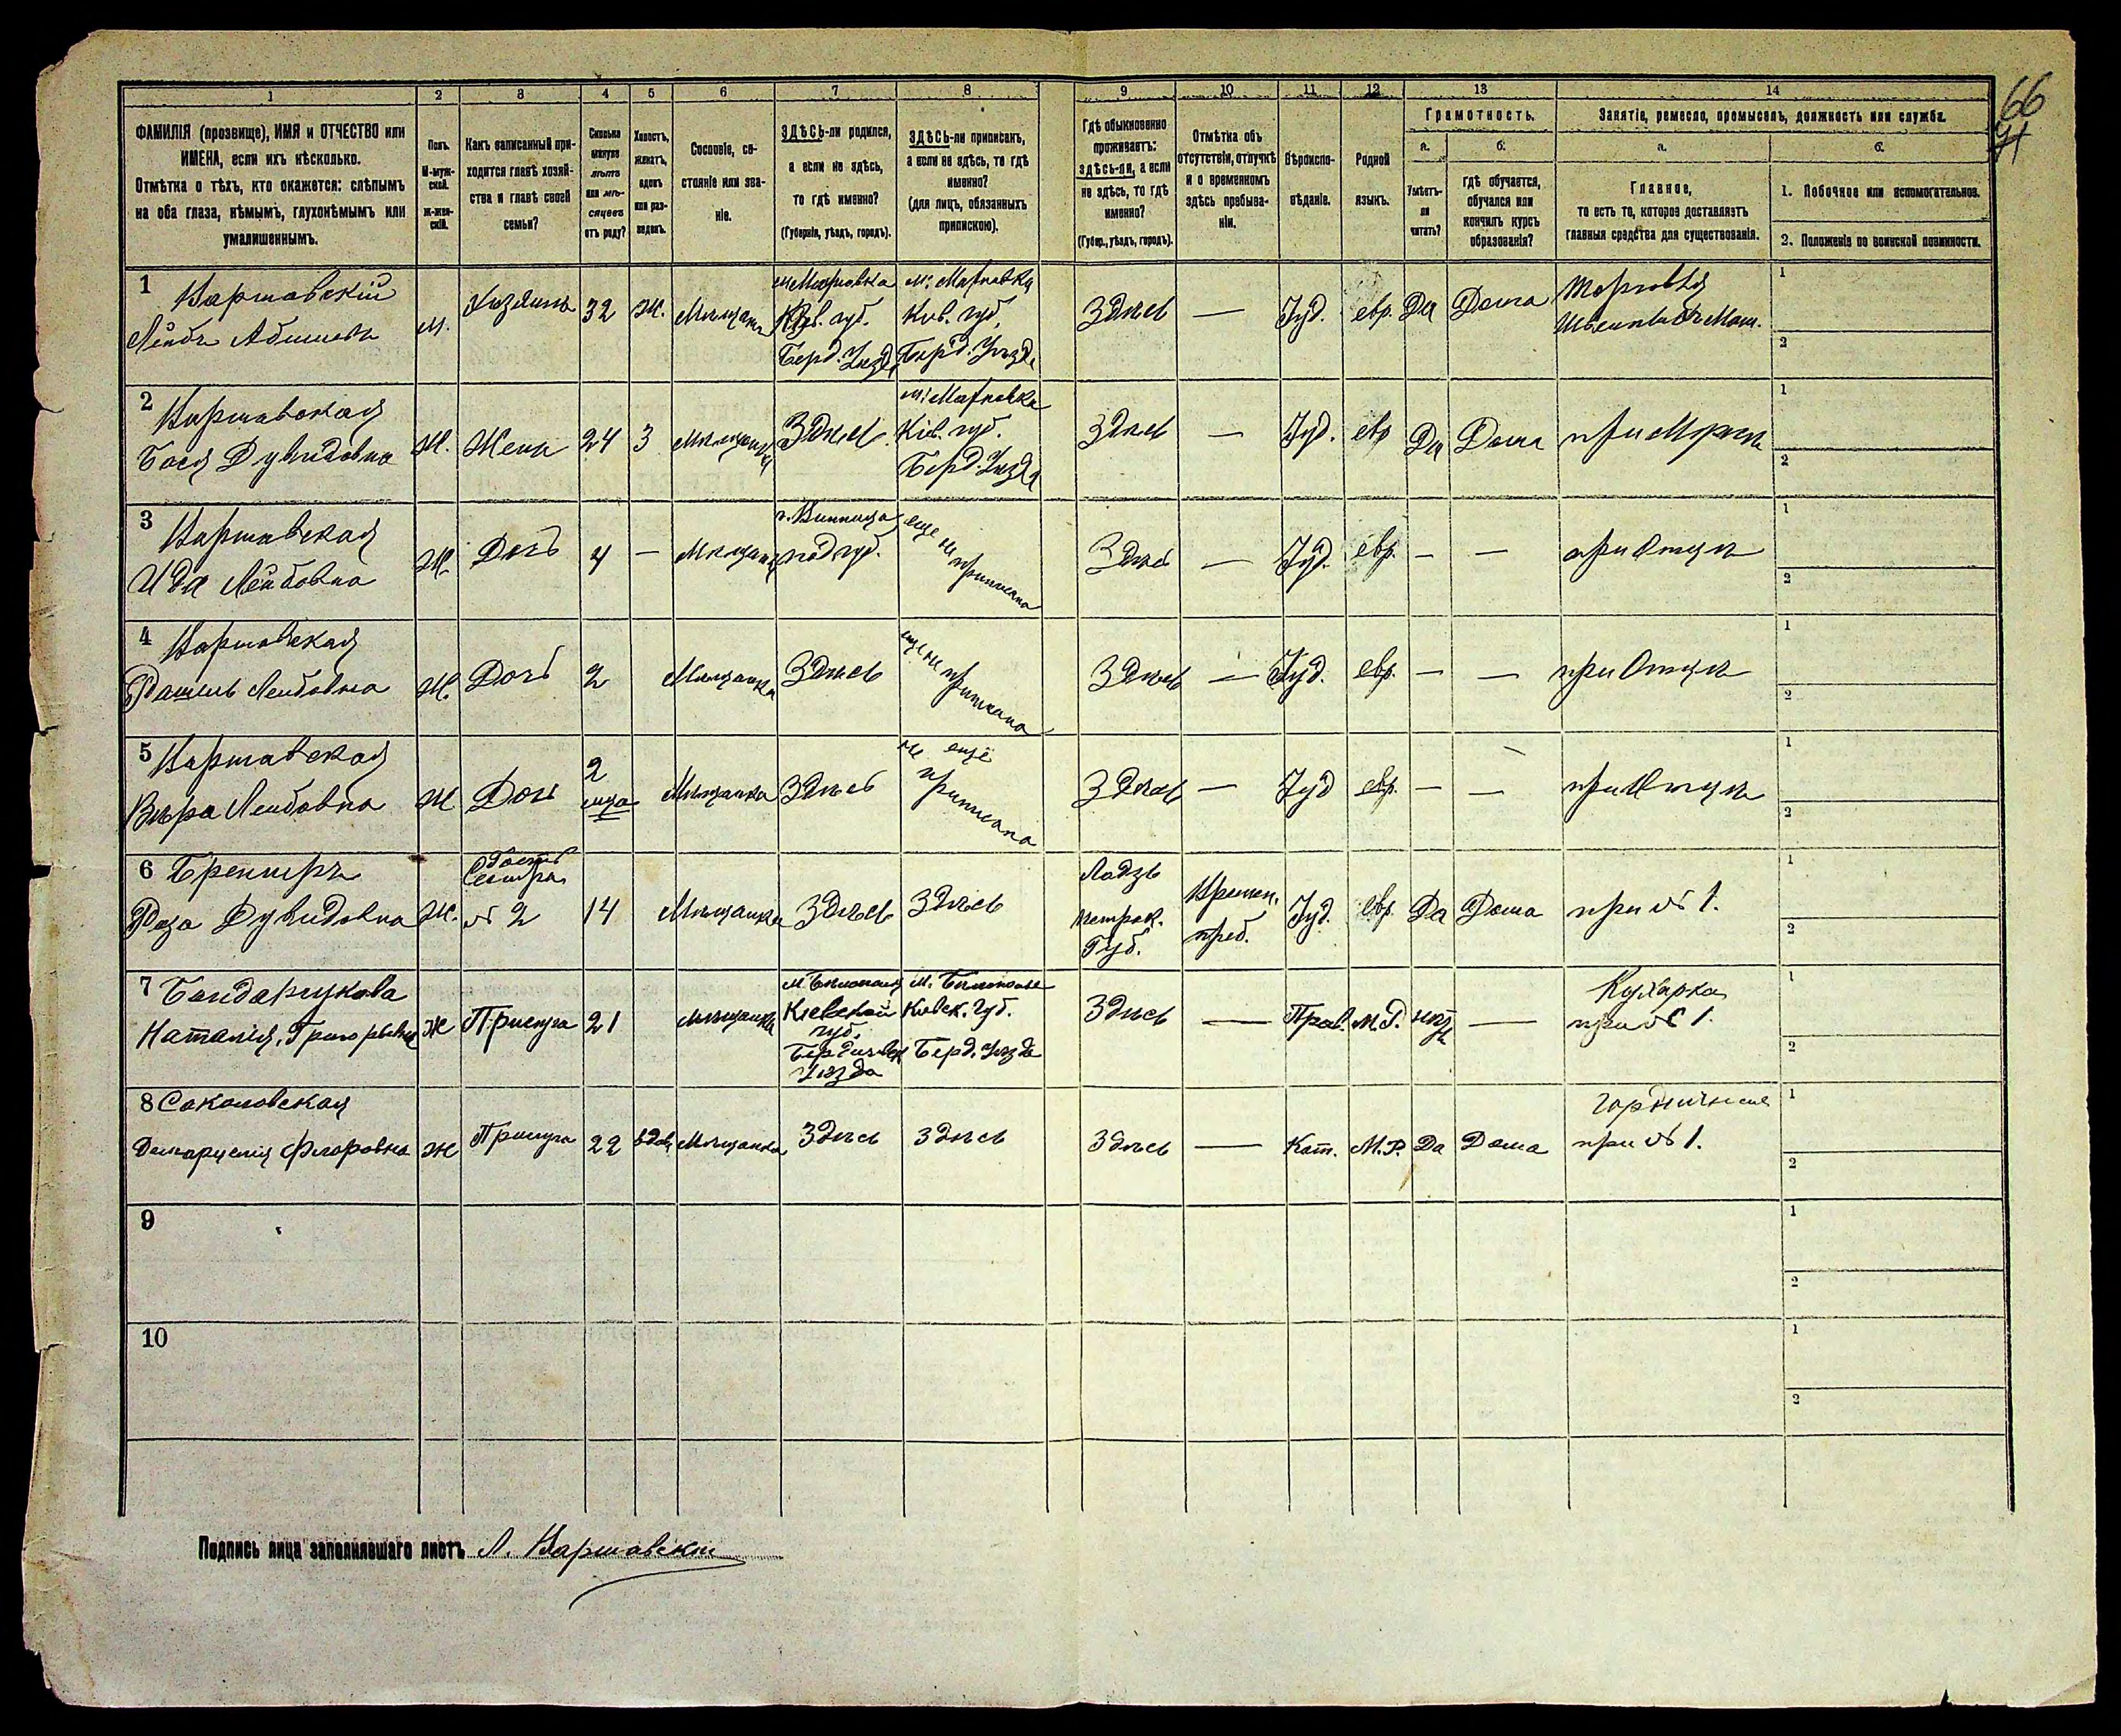 66
71
1 2 3 4 5 6 7 8 9 10 11 12 13 14
ФАМИЛІЯ (прозвище), ИМЯ и ОТЧЕСТВО или
ИМЕНА, если ихъ нѣсколько.
Отмѣтка о тѣхъ, кто окажется: слѣпымъ
на оба глаза, нѣмымъ, глухонѣмымъ или
умалишеннымъ.
Полъ.
М-муж-
ской.
Ж-жен-
скій.
Какъ записанный при-
ходится главѣ хозяй-
ства и главѣ своей
семьи?
Сколько
минуло
лѣтъ
или мѣ-
сяцевъ
отъ роду?
Холостъ,
женатъ,
вдовъ
или раз-
веденъ.
Сословіе, со-
стояніе или зва-
ніе.
ЗДѢСЬ-ли родился,
а если не здѣсь,
то гдѣ именно?
(Губернія, уѣздъ, городъ).
ЗДѢСЬ-ли приписанъ,
а если не здѣсь, то гдѣ
именно?
(для лицъ, обязанныхъ
припискою).
Гдѣ обыкновенно
проживаетъ:
здѣсь-ли, а если
не здѣсь, то гдѣ
именно?
(Губер., уѣздъ, городъ).
Отмѣтка объ
отсутствіи, отлучкѣ
и о временномъ
здѣсь пребыва-
ніи.
Вѣроиспо-
вѣданіе.
Родной
языкъ.
Грамотность.
а.
Умѣетъ-
ли
читать?
б.
гдѣ обучается,
обучался или
кончилъ курсъ
образованія?
Занятіе, ремесло, промыселъ, должность или служба.
а.
Главное,
то есть то, которое доставляетъ
главныя средства для существованія.
б.
1. Побочное или вспомогательное.
2. Положеніе по воинской повинности.
1 Варшавскій
Лейбъ Абишевъ
м.
Хозяинъ
32
Ж.
Мѣщанъ
м. Махновка
Кіев. губ.
Берд. Уѣзда
м. Махновка
Кіев. губ.
Берд. Уѣзда
Здѣсь
—
Іуд.
евр.
Да
Дома
Торговля
Маш.
1
2
2 Варшавская
Бася Дувидовна
Ж.
Жена
24
З
Мѣщанка
Здѣсь
м. Махновка
Кіев. губ.
Берд. Уѣзда
Здѣсь
—
Іуд.
евр
Да
Дома
при Мужѣ
1
2
3 Варшавская
Ида Лейбовна
Ж.
Дочь
4
—
Мѣщанка
г. Винница
под. губ.
еще не приписана
Здѣсь
—
Іуд.
евр.
—
—
при Отцѣ
1
2
4 Варшавская
Рахиль Лейбовна
Ж.
Дочь
2
Мѣщанка
Здѣсь
еще не приписана
Здѣсь
—
Іуд.
евр.
—
—
при Отцѣ
1
2
5 Варшавская
Вѣра Лейбовна
Ж
Дочь
2
мца
Мѣщанка
Здѣсь
не еще
приписана
Здѣсь
—
Іуд
евр.
—
—
при Отцѣ
1
2
6
Роза Дувидовна
Ж.
Гость
Сестра
№ 2
14
Мѣщанка
Здѣсь
Здѣсь
Лодзь
Петрок.
Губ.
Времен.
преб.
Іуд.
евр.
Да
Дома
при № 1.
1
2
7 Бондарчукова
Наталія Григорьевна
Ж
Прислуга
21
Мѣщанка
м. Бѣлополье
Кіевской
губ.
Бердичевск
Уѣзда
м. Бѣлополье
Кіевск. Губ.
Берд. Уѣзда
Здѣсь
—
Прав.
М.Р.
нѣтъ
—
Кухарка
при № 1.
1
2
8 Соколовская
Флоровна
Ж
Прислуга
22
вдов.
Мѣщанка
Здѣсь
Здѣсь
Здѣсь
—
Кат.
М.Р.
Да
Дома
Горничная
при № 1.
1
2
9
1
2
10
1
2
Подпись лица заполнявшаго листъ Л. Варшавскій